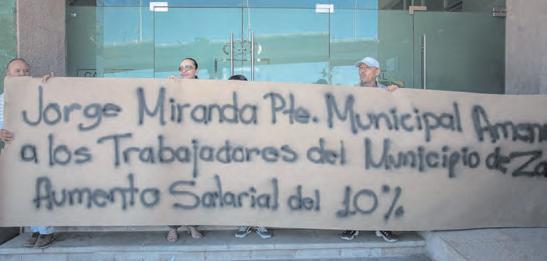 Jorge Miranda Pte. Municipal Amen
a los Trabajadores del Municipio de Za
Aumento Salarial del 10%